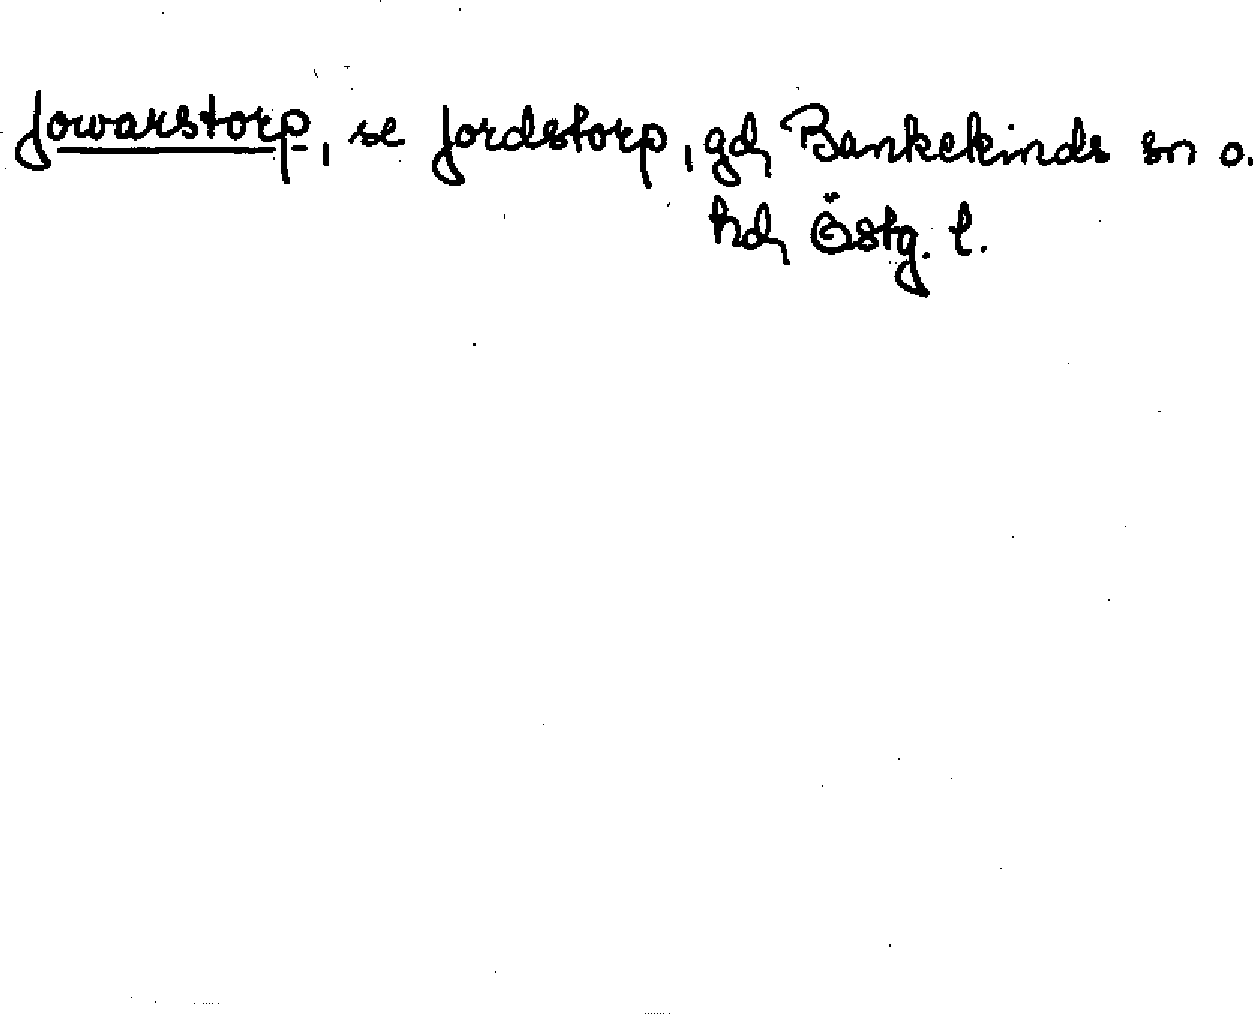 Jowarstorp, se Jordstorp, gd, Bankekinds sn o.
hd, Östg. l.